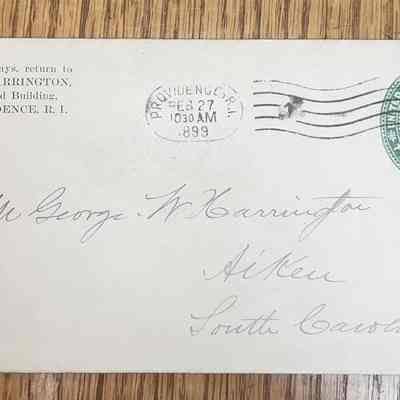 ays, return to
ARRINGTON,
d Building,
DENCE, R. I.
PROVIDENCE, R.I.
FEB 27
1030 AM
1899
Mr George W Harrington
Aiken
South Carol